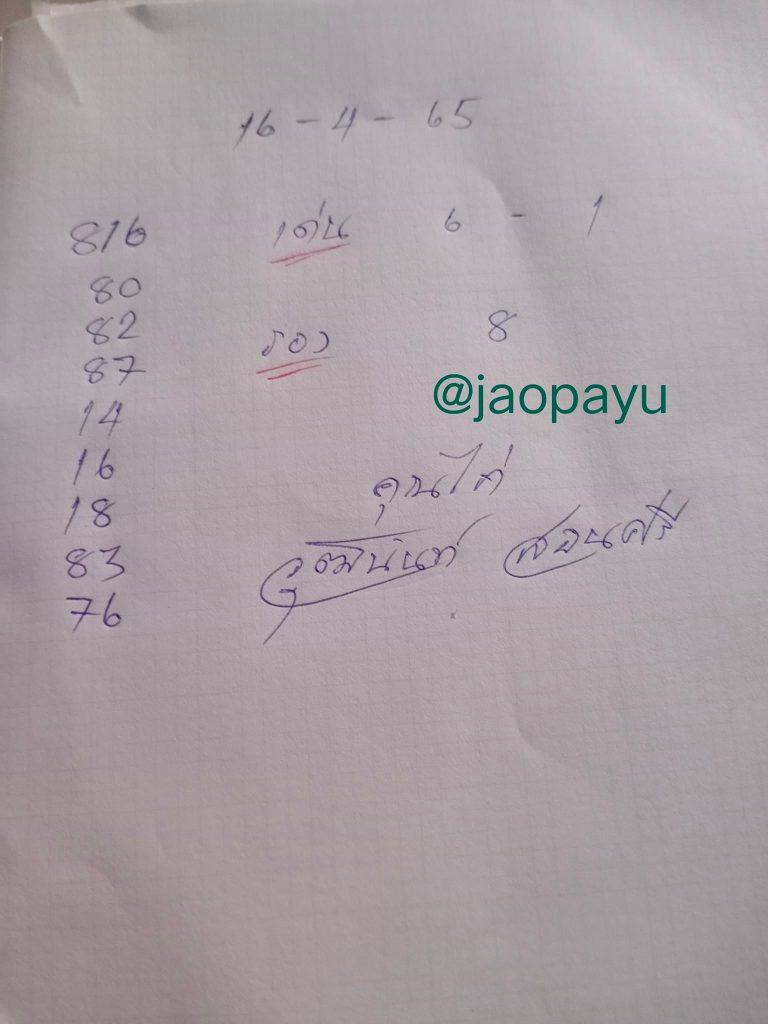 16 - 4 - 65
816 เด่น 6 - 1
80
82 รอง 8
87
@jaopayu
14
16 คุณไก่
18
83 วุฒินันท์ สอนศรี
76